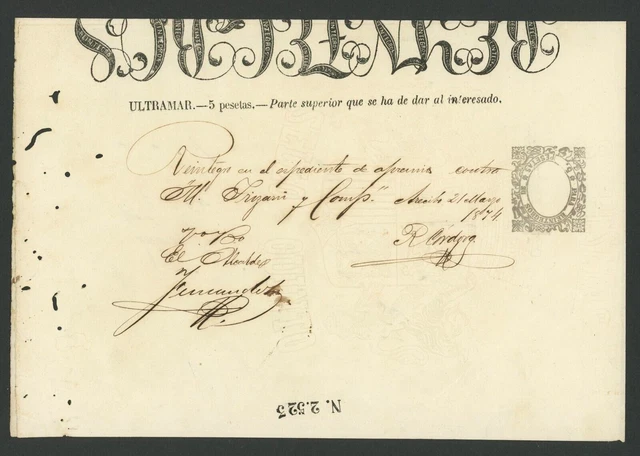 ULTRAMAR.—5 pesetas.—Parte superior que se ha de dar al interesado.
Reintegro en el expediente de apremio contra
M. Irizarri y Comp.ª Arecibo 21 Marzo
1874
Vo Bo
El Alcalde
R Ordoz
N. 2.523